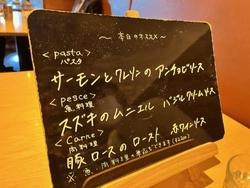 〜 本日のオススメ 〜
<pasta>
パスタ
サーモンとクレソンのアンチョビソース
<pesce>
魚料理
スズキのムニエル バジルクリームソース
<Carne>
肉料理
豚ロースのロースト 赤ワインソース
※ 魚・肉料理は単品でできます